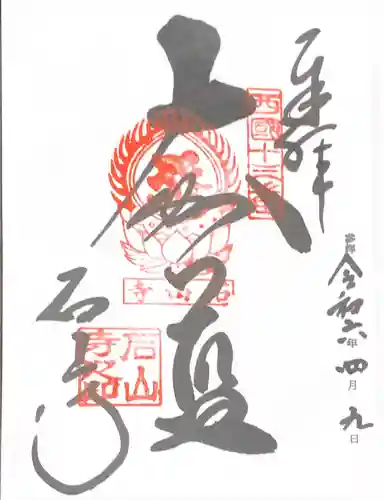 奉拝
西國十三番
参拝 令和六年四月九日
大悲殿
石山寺
石山寺
石山寺